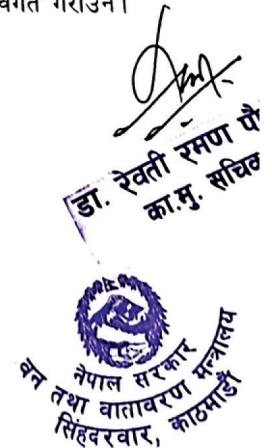 गराउन।
डा. रेवती रमण पौ
का.मु. सचिव
नेपाल सरकार
वन तथा वातावरण मन्त्रालय
सिंहदरवार, काठमाडौं